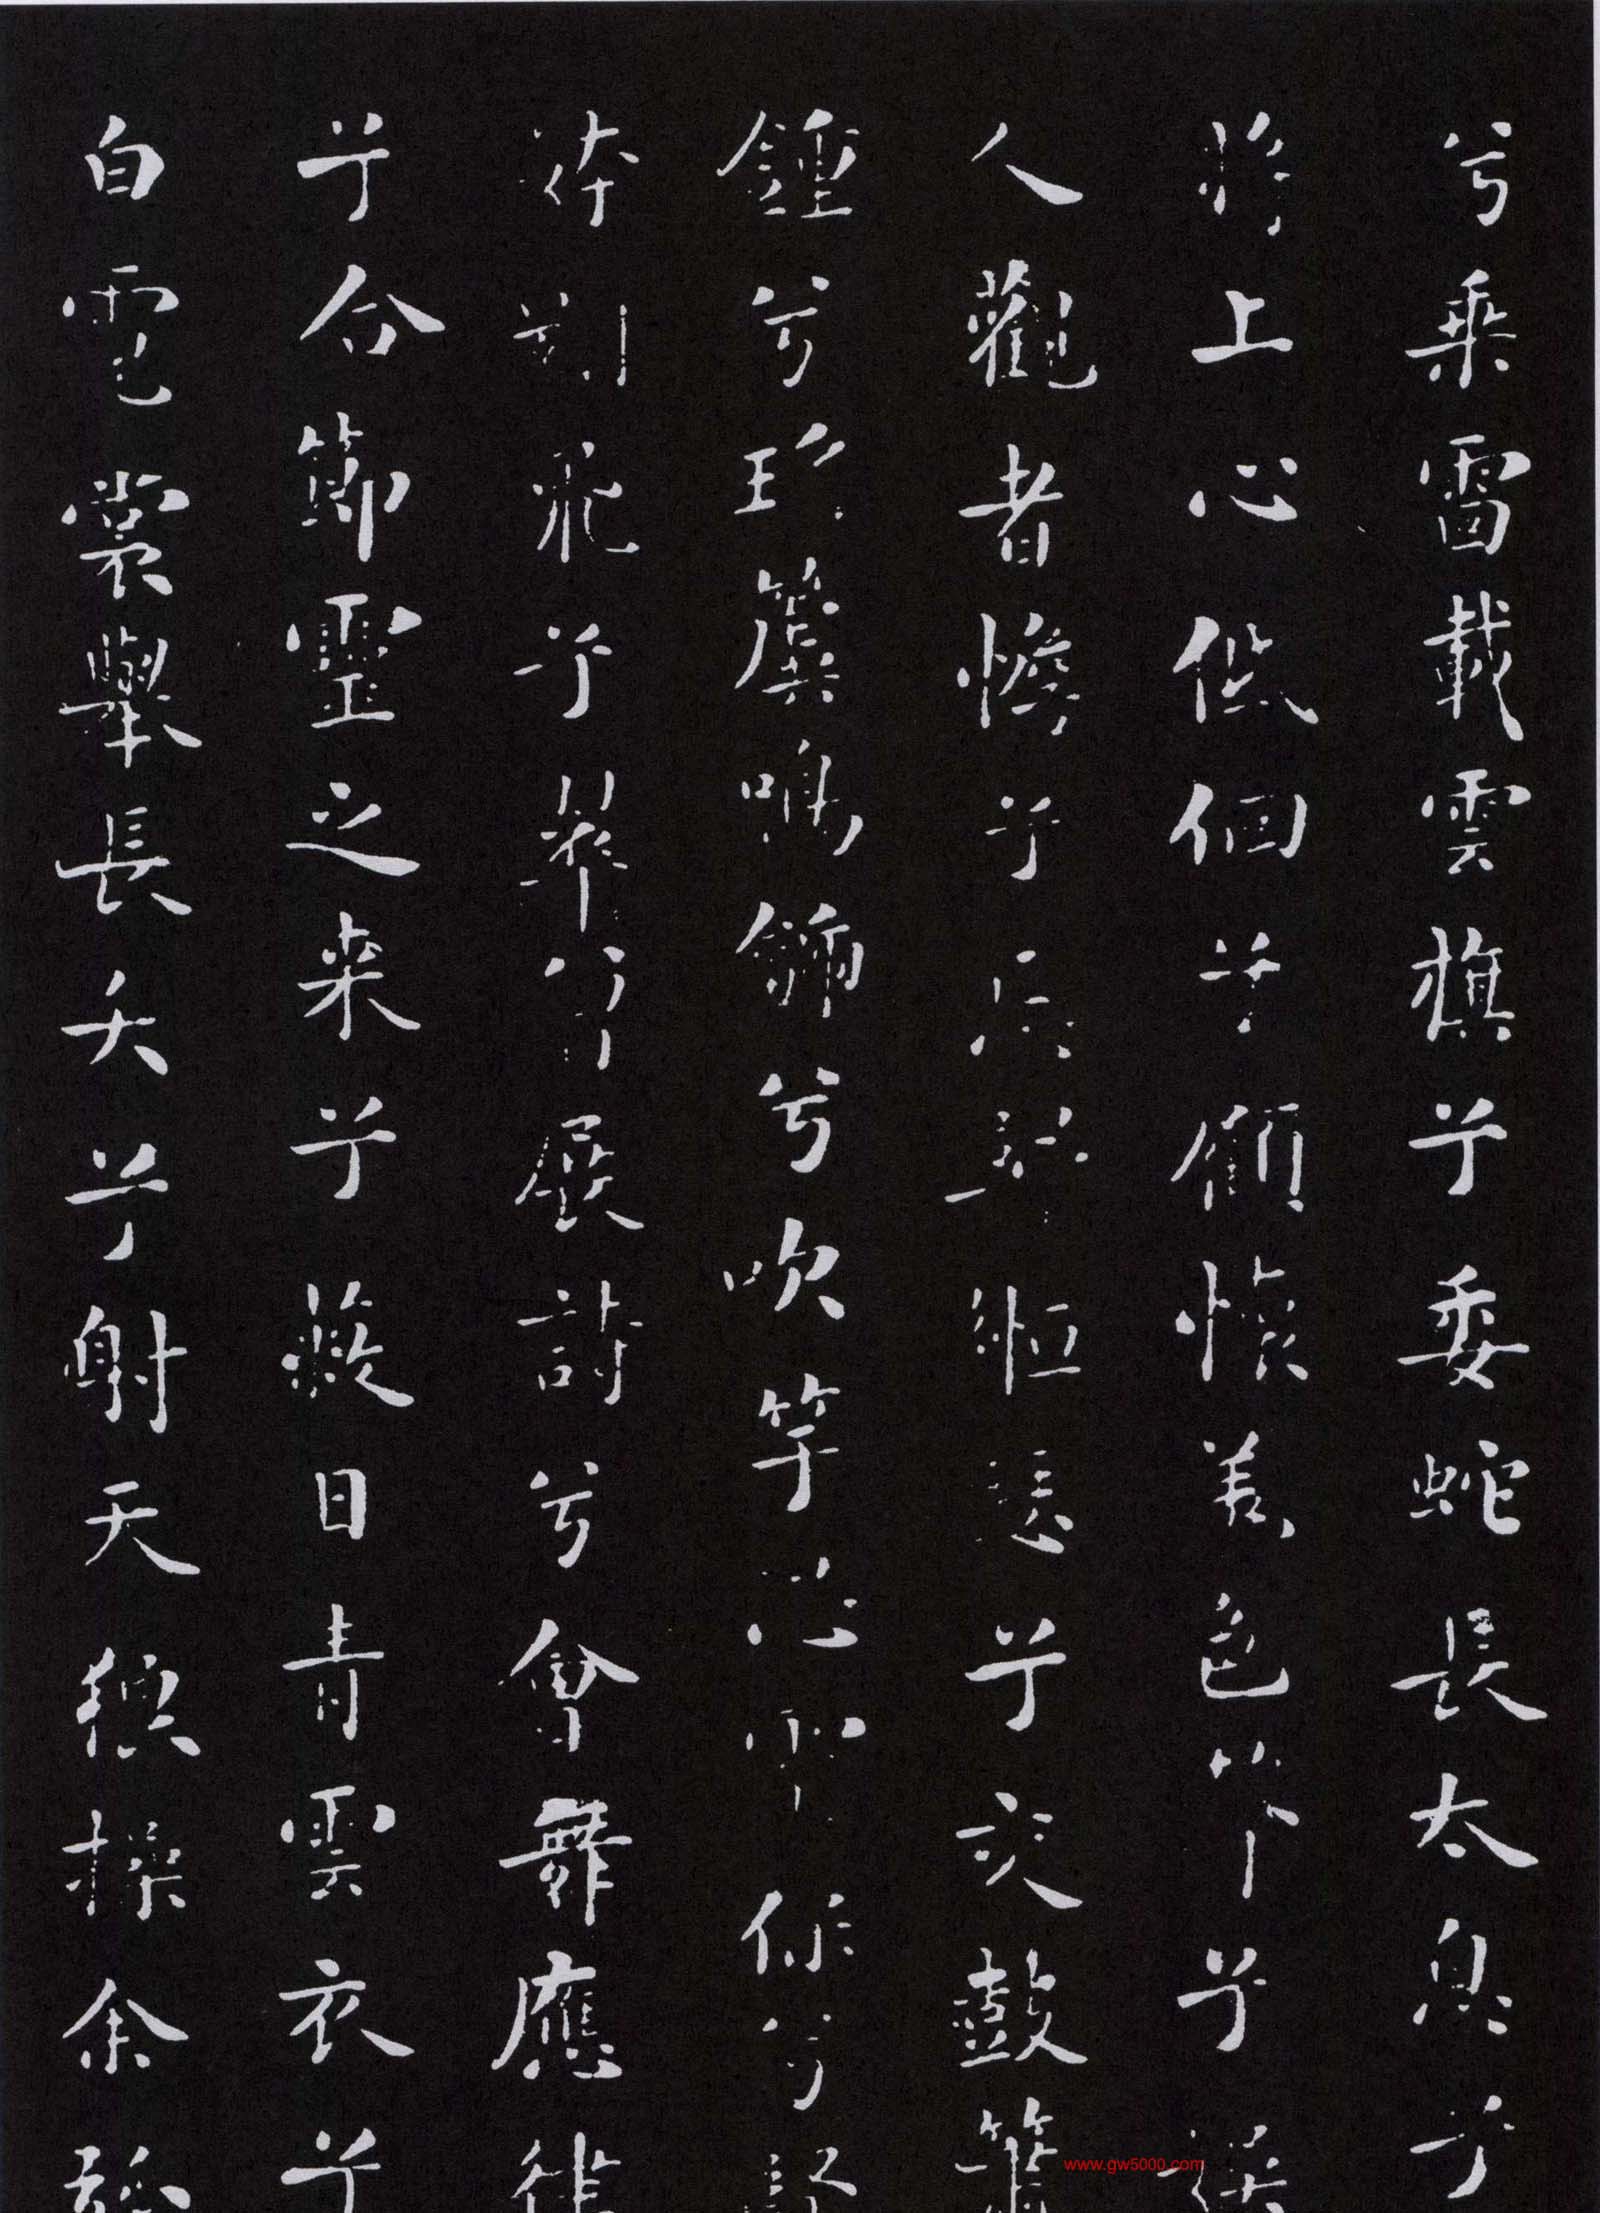 兮乘雷載雲旗兮委蛇長太息兮
將上心低佪兮顧懷羌色聲兮娛
人觀者憺兮忘歸緪瑟兮交鼓簫
鍾兮瑤簴鳴鯱兮吹竽思靈保兮賢
姱翾飛兮翠曾展詩兮會舞應律
兮合節靈之來兮蔽日青雲衣兮
白霓裳舉長矢兮射天狼操余弧
www.gw5000.com